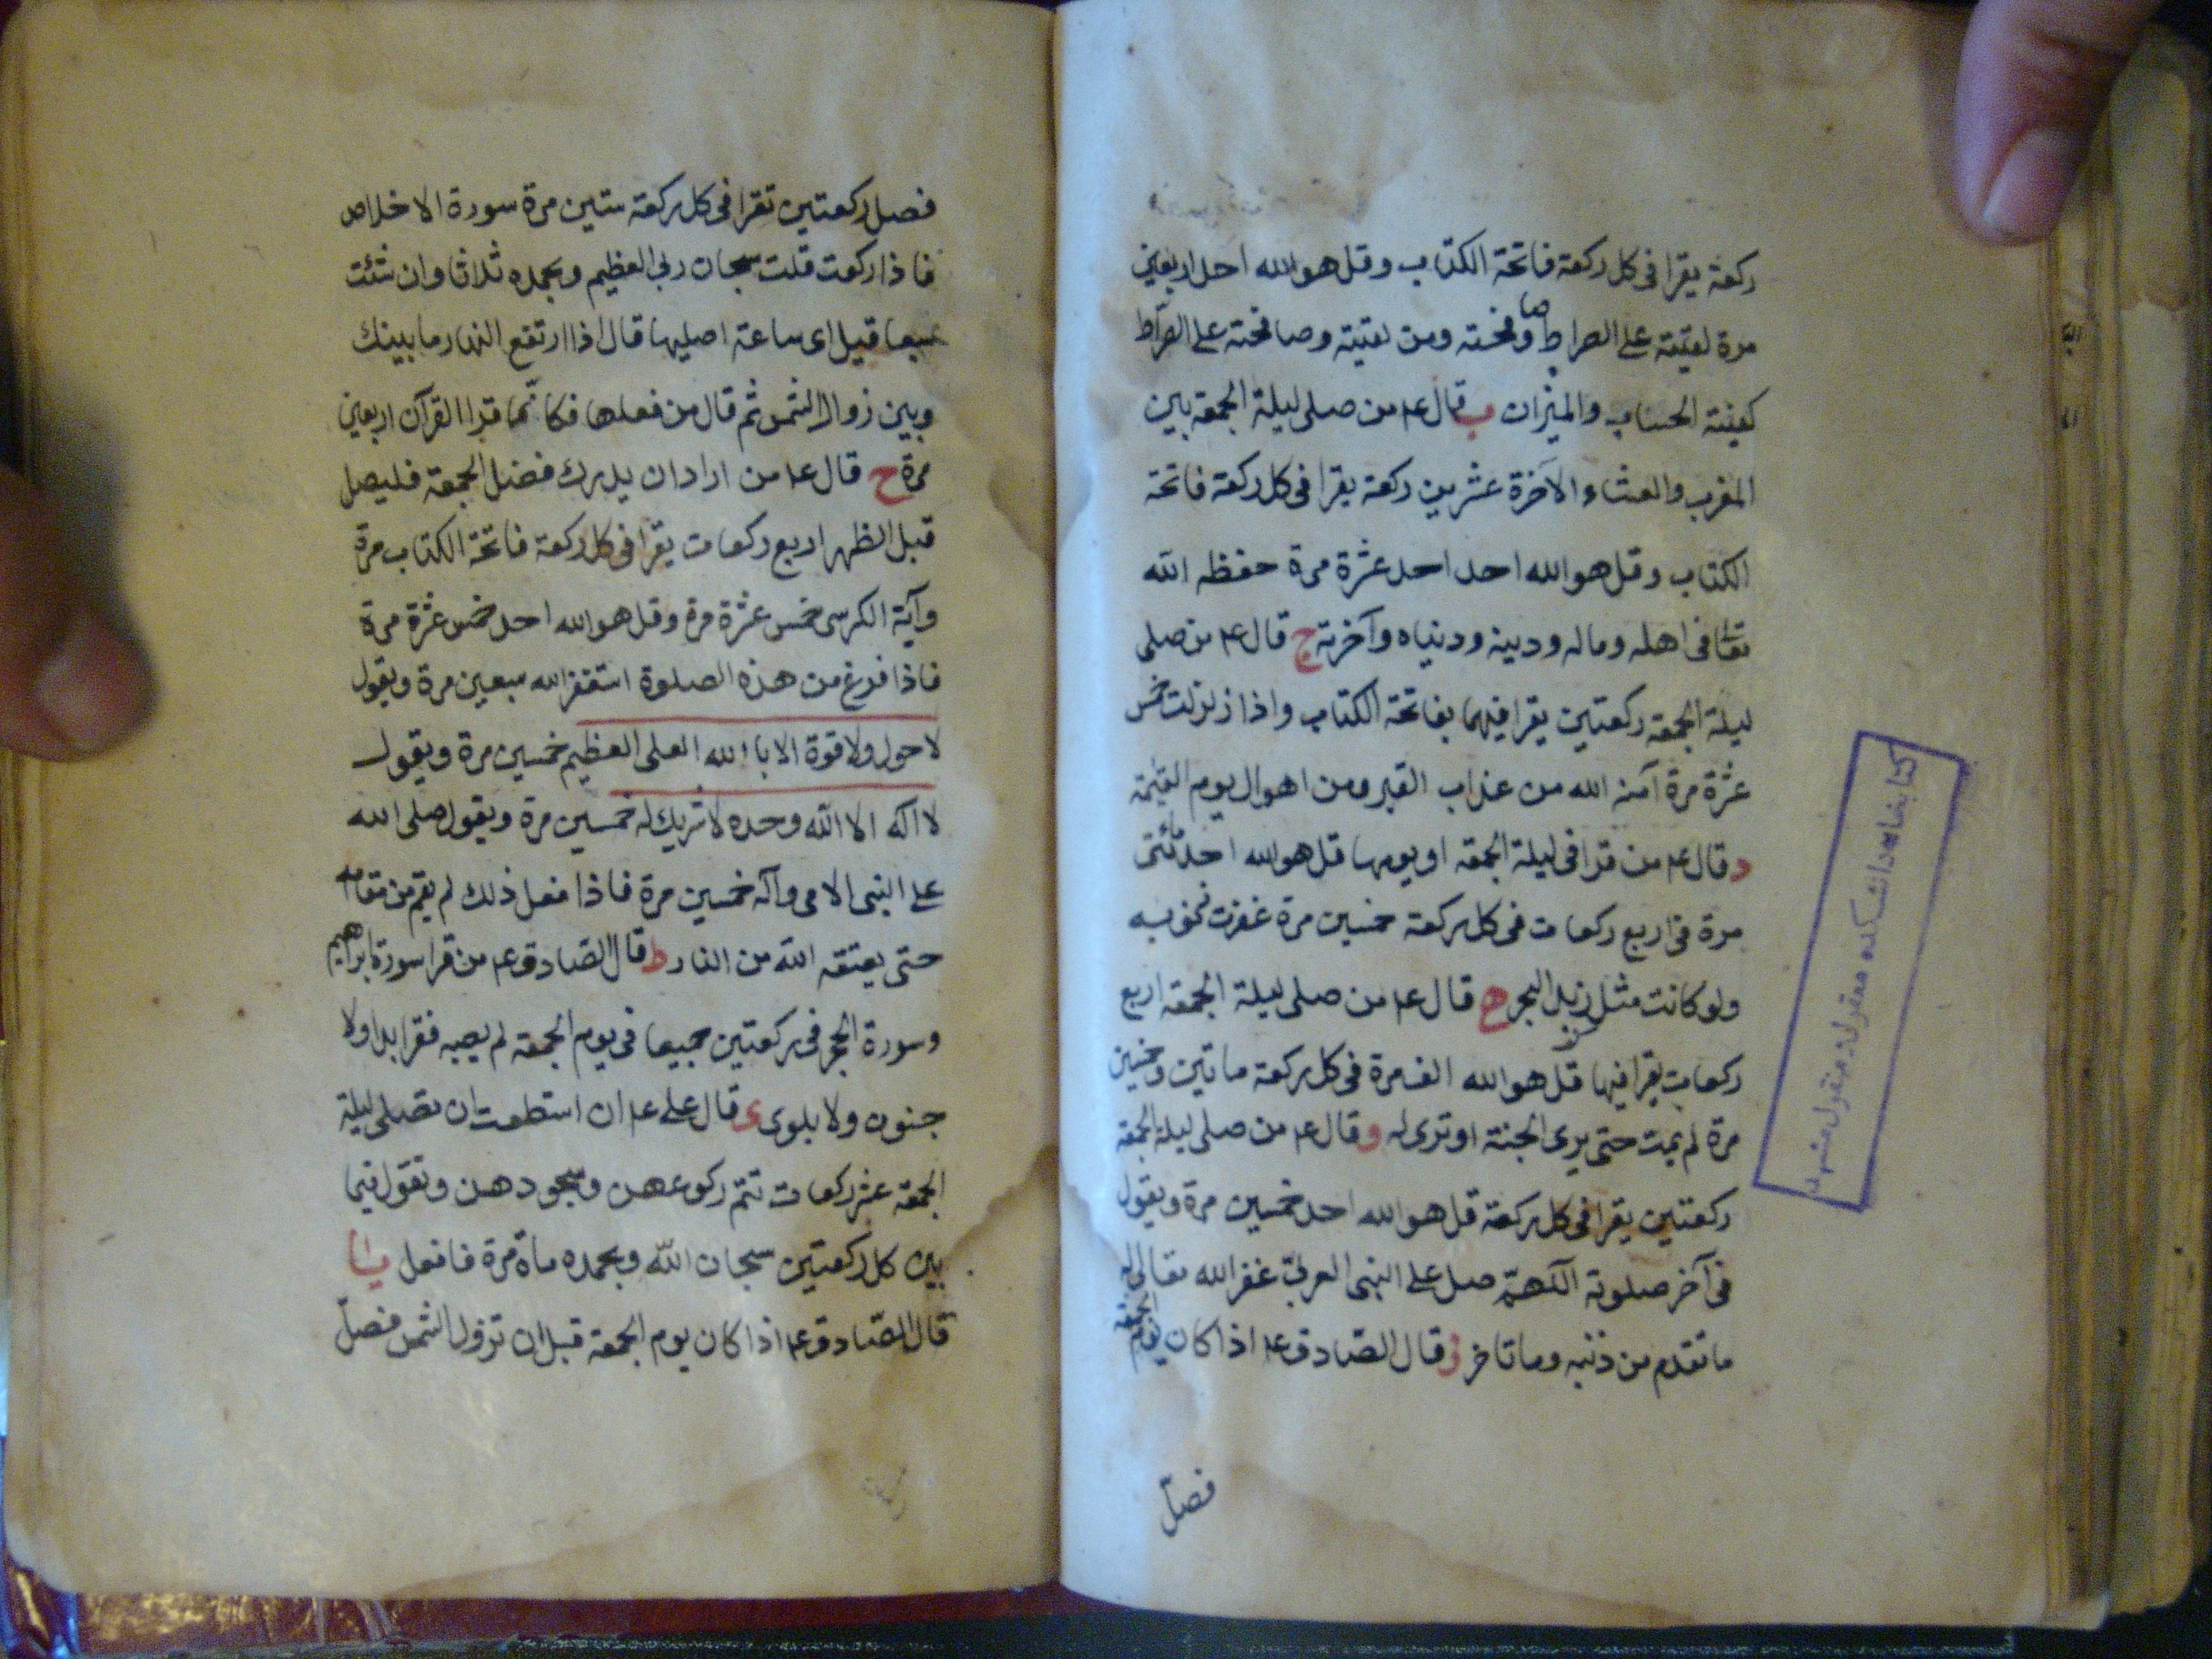 ركعة يقرا فى كل ركعة فاتحة الكتاب وقل هو الله احد اربعين
مرة لقيته على الصراط وصافحته ومن لقيته وصافحته على الصراط
كفيته الحساب والميزان ب قال ع من صلى ليلة الجمعة بين
المغرب والعشاء الآخرة عشرين ركعة يقرا فى كل ركعة فاتحة
الكتاب وقل هو الله احد احد عشرة مرة حفظه الله
تعالى فى اهله وماله ودينه ودنياه وآخرته ج قال ع من صلى
ليلة الجمعة ركعتين يقرا فيهما بفاتحة الكتاب واذا زلزلت خمس
عشرة مرة آمنه الله من عذاب القبر ومن اهوال يوم القيمة
د قال ع من قرا فى ليلة الجمعة او يومها قل هو الله احد مائتى
مرة فى اربع ركعات فى كل ركعة خمسين مرة غفرت ذنوبه
ولو كانت مثل زبد البحر ه قال ع من صلى ليلة الجمعة اربع
ركعات يقرا فيها قل هو الله الف مرة فى كل ركعة ماتين وخمسين
مرة لم يمت حتى يرى الجنة او ترى له و قال ع من صلى ليلة الجمعة
ركعتين يقرا فى كل ركعة قل هو الله احد خمسين مرة ويقول
فى آخر صلوته اللهم صل على النبى العربى غفر الله تعالى له
ما تقدم من ذنبه وما تاخر ز قال الصادق ع اذا كان يوم الجمعة
فصل
كتابخانه دانشكده معقول و منقول مشهد
فصل ركعتين تقرا فى كل ركعة ستين مرة سورة الاخلاص
فاذا ركعت قلت سبحان ربى العظيم وبحمده ثلاثا وان شئت
سبعا قيل اى ساعة اصليها قال اذا ارتفع النهار ما بينك
وبين زوال الشمس ثم قال من فعلها فكانما قرا القرآن اربعين
مرة ح قال ع من اراد ان يدرك فضل الجمعة فليصل
قبل الظهر اربع ركعات يقرا فى كل ركعة فاتحة الكتاب مرة
وآية الكرسى خمس عشرة مرة وقل هو الله احد خمس عشرة مرة
فاذا فرغ من هذه الصلوة استغفر الله سبعين مرة ويقول
لا حول ولا قوة الا با الله العلى العظيم خمسين مرة ويقول
لا اله الا الله وحده لا شريك له خمسين مرة ويقول صلى الله
على النبى الامى وآله خمسين مرة فاذا فعل ذلك لم يقم من مقامه
حتى يعتقه الله من النار ط قال الصادق ع من قرا سورة ابراهيم
وسورة الحجر فى ركعتين جميعا فى يوم الجمعة لم يصبه فقر ابدا ولا
جنون ولا بلوى ى قال على ع ان استطعت ان تصلى ليلة
الجمعة عشر ركعات تتم ركوعهن وسجودهن وتقول فيما
بين كل ركعتين سبحان الله وبحمده ماة مرة فافعل يا
قال الصادق ع اذا كان يوم الجمعة قبل ان تزول الشمس فصل